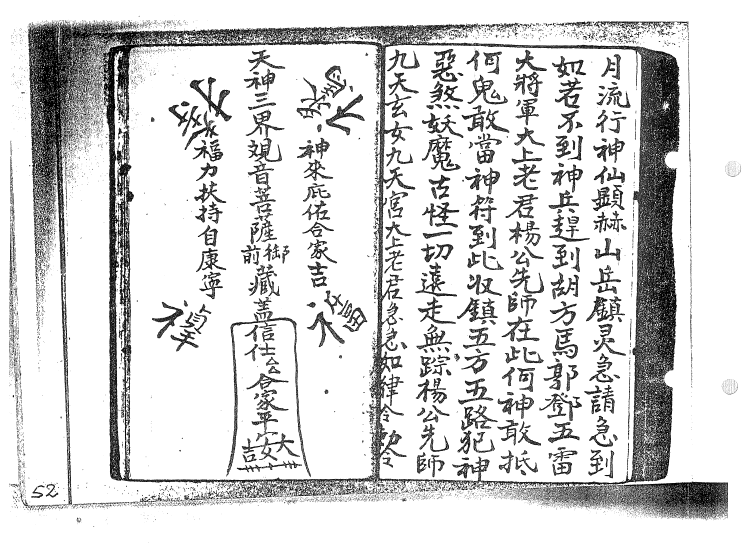 月流行神仙顯赫山岳鎮灵急請急到
如若不到神兵趕到胡方馬郭鄧五雷
大將軍大上老君楊公先師在此何神敢抵
何鬼敢當神符到此收鎮五方五路犯神
惡煞妖魔古怪一切遠走無踪楊公先師
九天玄女九天宮大上老君急急如律令
神來庇佑合家吉
天神三界观音菩薩御前藏盖信仕 合家平安大吉
福力扶持自康寧
52